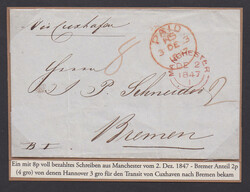 via Cuxhafen
PAID
3 DE 3
MANCHESTER
DE 2
1847
8
Herrn J. P. Schneider
Bremen
Ein mit 8p voll bezahltes Schreiben aus Manchester vom 2. Dez. 1847 - Bremer Anteil 2p
(4 gro) von denen Hannover 3 gro für den Transit von Cuxhaven nach Bremen bekam